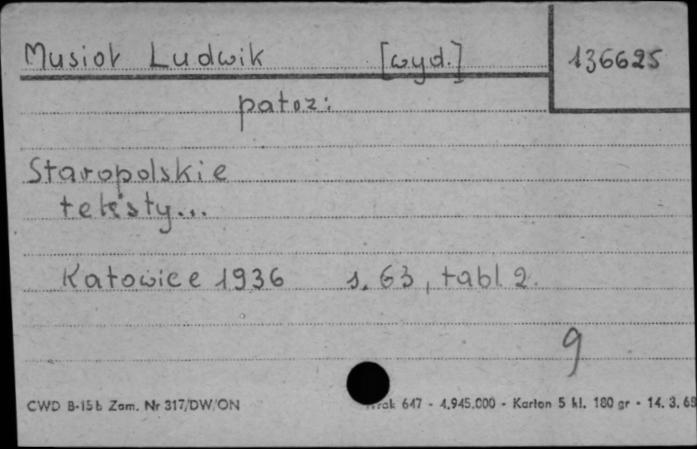 Musioł Ludwik [wyd.] 136625
patrz:
Staropolskie
teksty...
Katowice 1936 s. 63, tabl. 2.
9
CWD B-15b Zam. Nr 317/DW/ON 647 - 4.945.000 - Karton 5 kl. 180 gr - 14. 3. 68